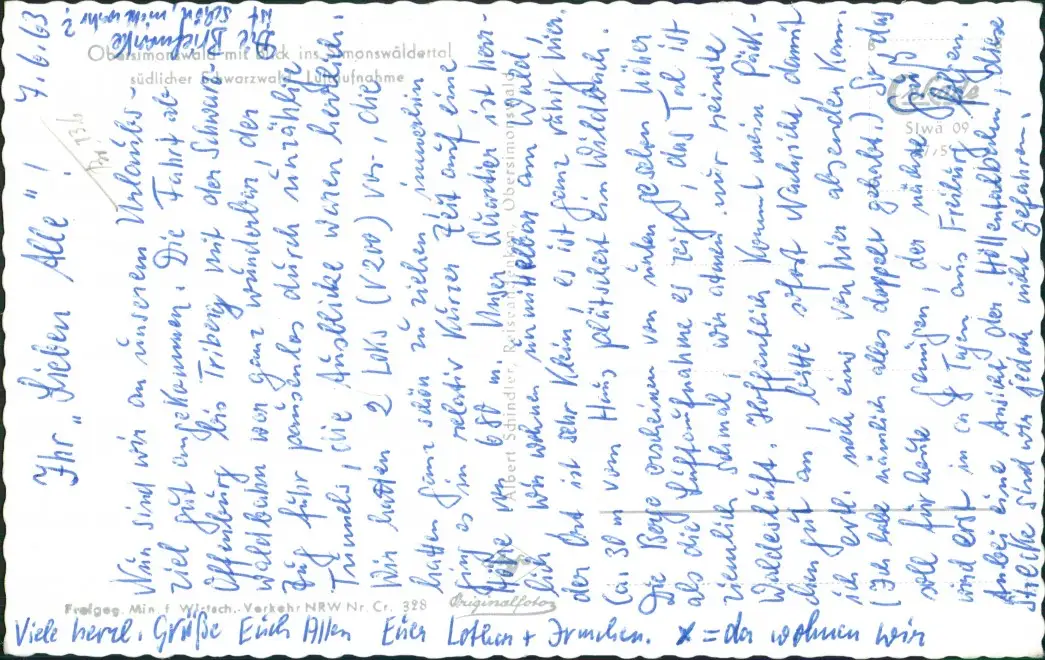 7.6.63
Ihr "Lieben Alle"!
Nun sind wir an unserem Urlaubs-
ziel gut angekommen. Die Fahrt ab
Offenburg bis Triberg mit der Schwarz-
waldbahn war ganz wunderbar, der
Zug fuhr pausenlos durch unzählige
Tunnels, die Ausblicke waren herrlich.
Wir hatten 2 Loks (V200) vor, die
hatten ganz schön zu ziehen, immerhin
ging es in relativ kurzer Zeit auf eine
Höhe von 680 m. Unser Quartier ist herr-
lich wir wohnen unmittelbar am Wald,
der Ort ist sehr klein, es ist ganz ruhig hier.
Ca. 30 m vom Haus plätschert ein Wildbach.
Die Berge erscheinen von unten gesehen höher
als die Luftaufnahme es zeigt, das Tal ist
ziemlich schmal, wir atmen nur reinste
Waldesluft. Hoffentlich kommt mein Päck-
chen gut an, bitte sofort Nachricht damit
ich evtl. noch eins von hier absenden kann.
(Ich habe nämlich alles doppelt gehabt.) So das
soll für heute genügen, der nächste Gruß
wird erst in ca 8 Tagen aus Freiburg folgen.
Anbei eine Ansicht der Höllentalbahn, diese
Strecke sind wir jedoch nicht gefahren.
Viele herzl. Grüße Euch Allen Euer Lothar + Irmchen. X = da wohnen wir
Die Briefmarke
ist schön, nicht wahr?
Obersimonswald mit Blick ins Simonswäldertal
südlicher Schwarzwald Luftaufnahme
Cekade
Slwa 09
Albert Schindler, Reiseandenken, Obersimonswald
Freigeg. Min. f. Wirtsch. Verkehr NRW Nr. Cr. 328
Originalfoto